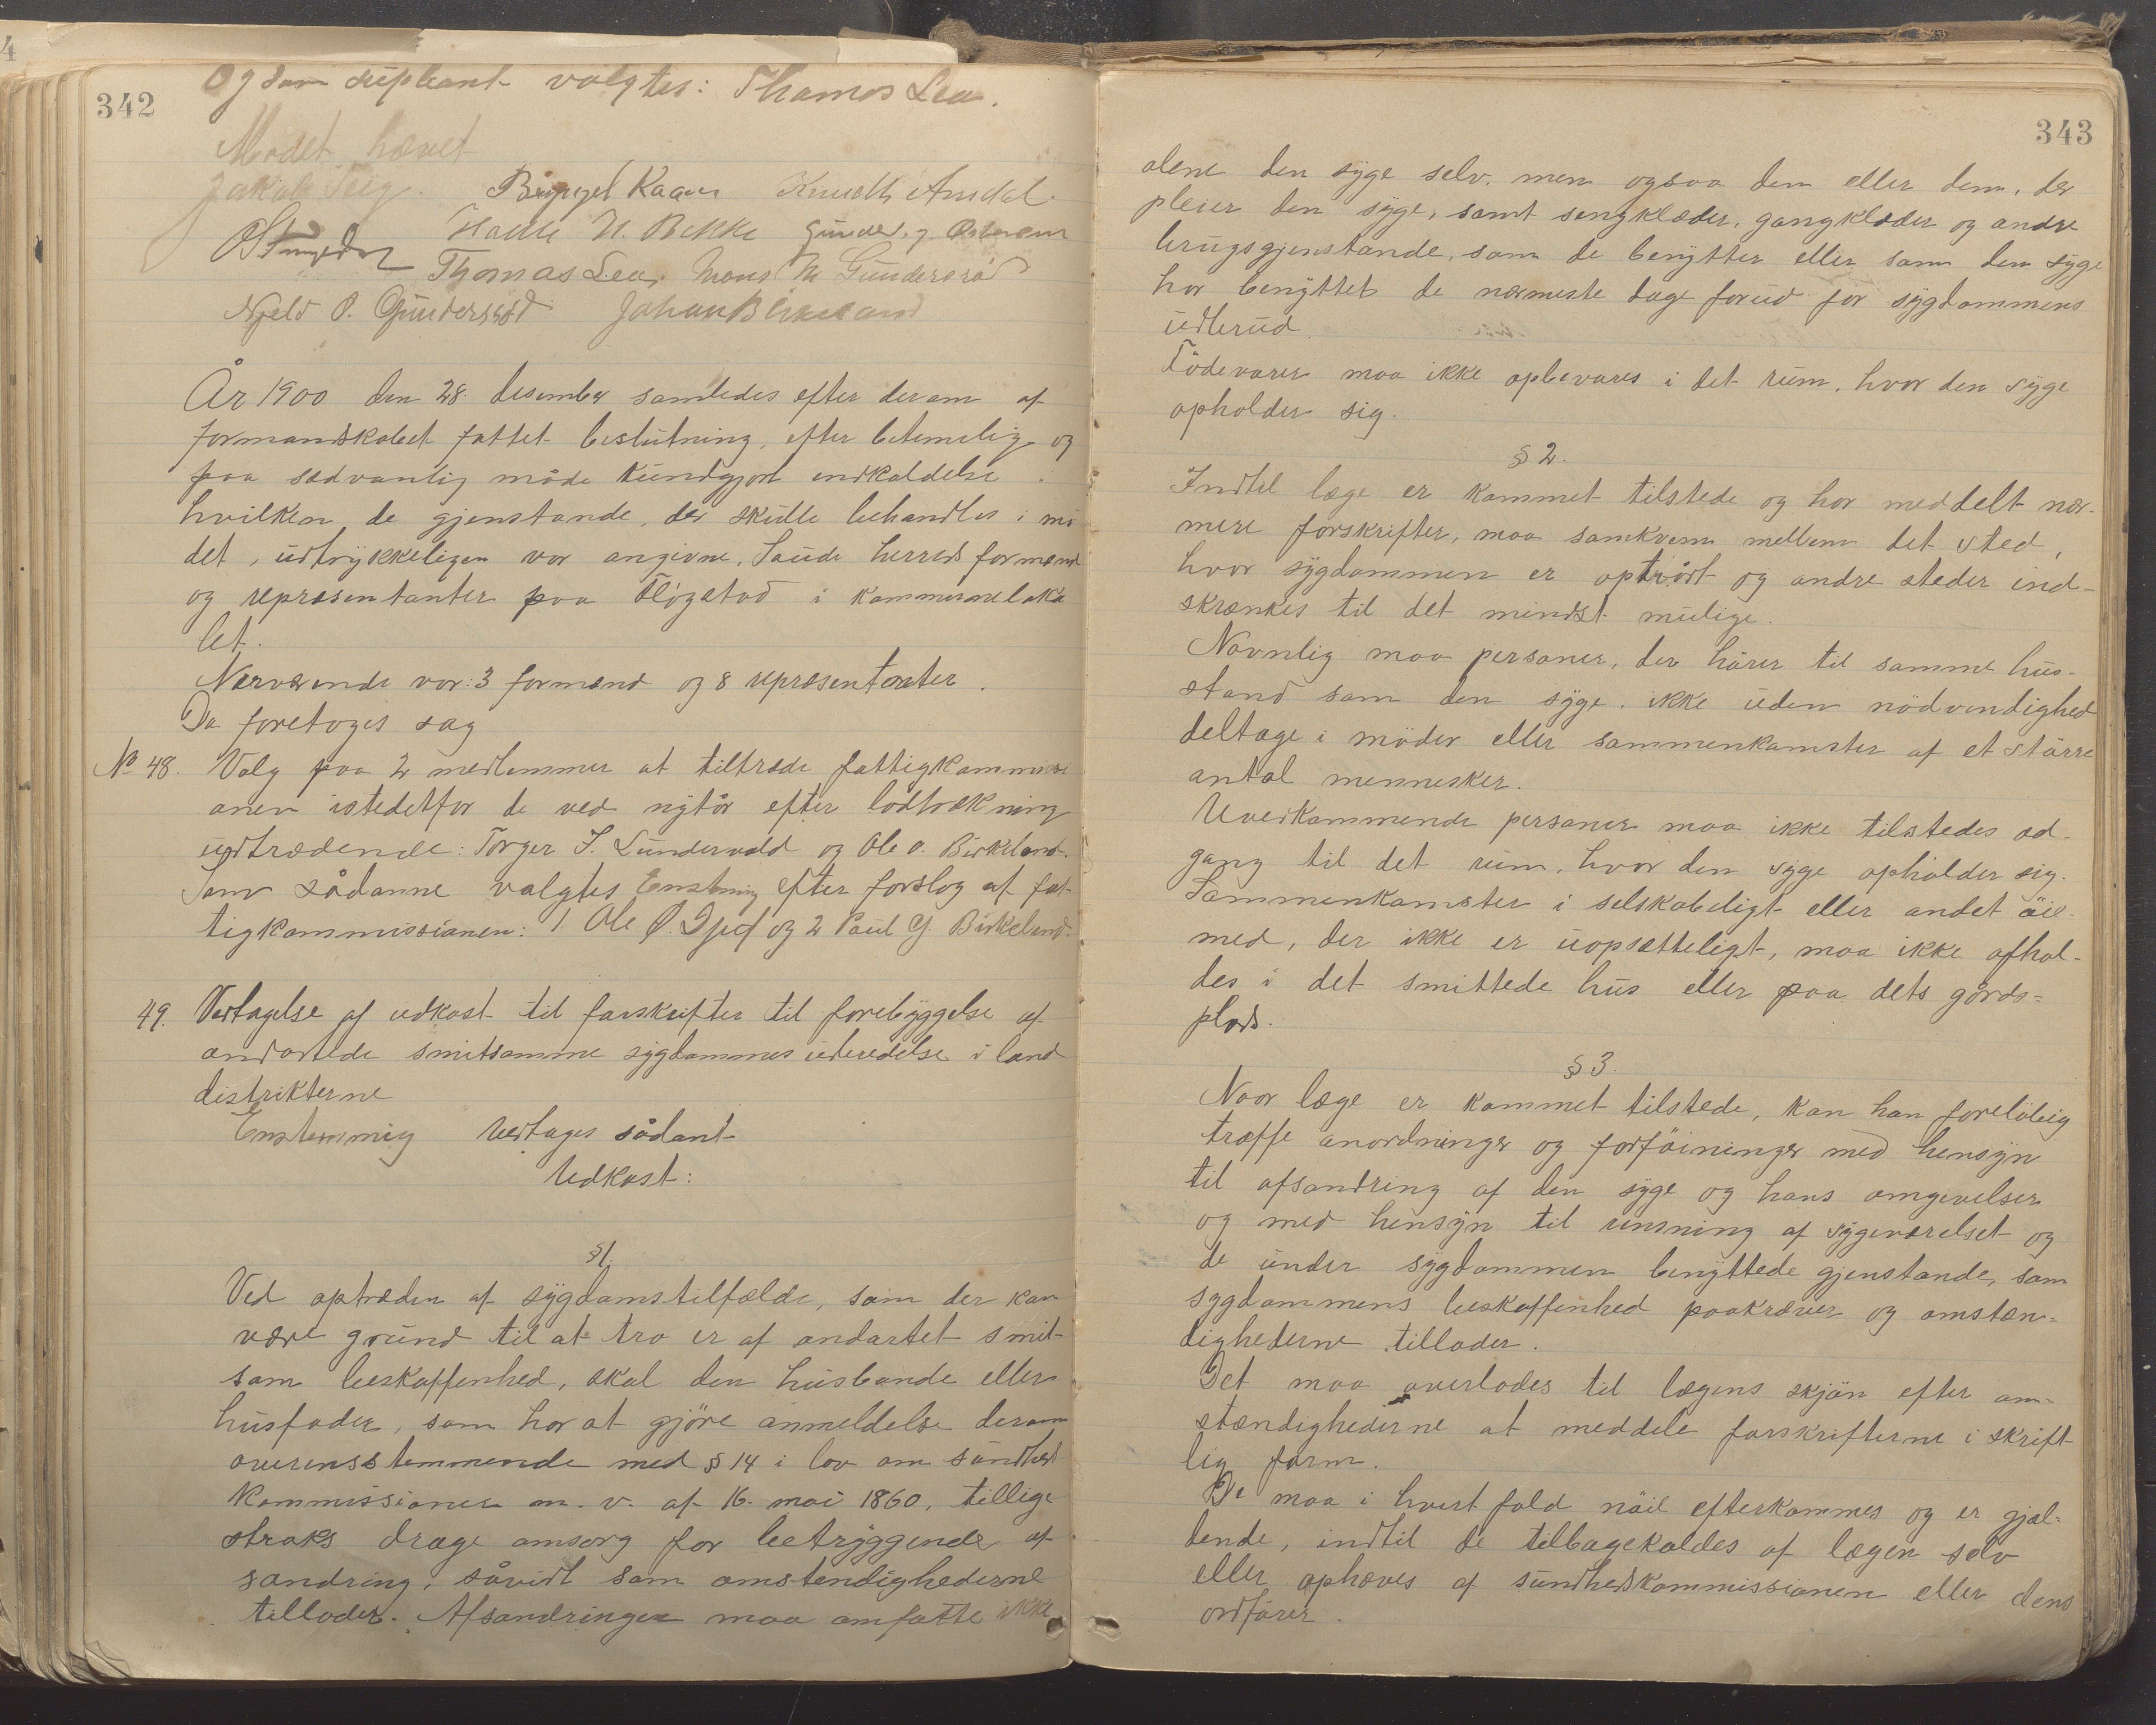 342
Og som supleant valgtes: Thomas Lea.
Mødet hævet
Jakob Seig. Knudth Amdal.
Thomas Lea, Mons M Gundersrød
Njeld O. Gundersrød Johan Birkeland
År 1900 den 28. desember samledes efter derom af
formandskabet fattet beslutning, efter betimelig og
paa sædvanlig måde kundgjort indkaldelse i
hvilken de gjenstande, der skulle behandles i mö
det, udtrykkeligen var angivne, Saude herreds formænd
og repræsentanter paa Fløgstad i kommuneloka
let.
Nærværende var: 3 formænd og 8 repræsentanter.
Da foretoges sag
No 48. Valg paa 2 medlemmer at tiltræde fattigkommissi
onen istedetfor de ved nytår efter lodtrækning
udtrædende: Torger J. Lundevold og Ole O. Birkeland.
Som sådanne valgtes Enstemig efter forslog af fat-
tigkommissionen: 1 Ole Ø. og 2 Paul G. Birkeland.
49. Vertagelse af udkast til forskrifter til forebyggelse af
ondartede smitsomme sygdommes udbredelse i land
distrikterne
Enstemmig Vertages sådant
Udkast:
§1.
Ved optræden af sygdomstilfælde, som der kan
være grund til at tro er af ondartet smit-
som beskaffenhed, skal den husbonde eller
husfader, som har at gjöre anmeldelse derom
overensstemmende med § 14 i lov om sundheds
kommissioner m. v. af 16. mai 1860, tillige
straks drage omsorg for betryggende af
sondring, såvidt som omstendighederne
tillader. Afsondringen maa omfatte ikke
343
alene den syge selv, men ogsaa den eller dem, der
pleier den syge, samt sengklæder, gangklæder og andre
brugsgjenstande, som de benytter eller som den syge
har benyttet de nærmeste dage forud for sygdommens
udbrud.
Födevarer maa ikke opbevares i det rum, hvor den syge
opholder sig.
§ 2.
Indtil læge er kommet tilstede og har meddelt nær-
mere forskrifter, maa samkvem mellem det sted,
hvor sygdommen er optrådt og andre steder ind-
skrænkes til det mindst mulige.
Navnlig maa personer, der hörer til samme hus-
stand som den syge, ikke uden nödvendighed
deltage i möder eller sammenkomster af et större
antal mennesker.
Uvedkommende personer maa ikke tilstedes ad-
gang til det rum, hvor den syge opholder sig.
Sammenkomster i selskabeligt eller andet öie-
med, der ikke er uopsætteligt, maa ikke afhol-
des i det smittede hus eller paa dets gårds=
plads.
§ 3.
Naar læge er kommet tilstede, kan han forelöbig
træffe anordninger og forföininger med hensyn
til afsondring af den syge og hans omgivelser
og med hensyn til rensning af sygeværelset og
de under sygdommen benyttede gjenstande, som
sygdommens beskaffenhed paakræver og omstæn=
dighederne tillader.
Det maa overlades til lægens skjön efter om=
stændighederne at meddele forskrifterne i skrift-
lig form.
De maa i hvert fald nöie efterkommes og er gjæl=
dende, indtil de tilbagekaldes af lægen selv
eller ophæves af sundhedskommissionen eller dens
ordförer.